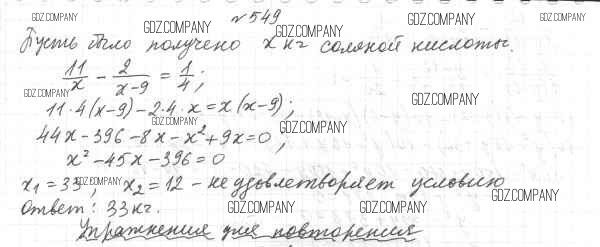 №549
Пусть было получено x кг соляной кислоты.
11/x - 2/(x-9) = 1/4;
11·4(x-9) - 2·4·x = x(x-9);
44x - 396 - 8x - x² + 9x = 0;
x² - 45x - 396 = 0
x₁ = 33, x₂ = 12 - не удовлетворяет условию
Ответ: 33 кг.
Упражнения для повторения
GDZ.COMPANY
GDZ.COMPANY
GDZ.COMPANY
GDZ.COMPANY
GDZ.COMPANY
GDZ.COMPANY
GDZ.COMPANY
GDZ.COMPANY
GDZ.COMPANY
GDZ.COMPANY
GDZ.COMPANY
GDZ.COMPANY
GDZ.COMPANY
GDZ.COMPANY